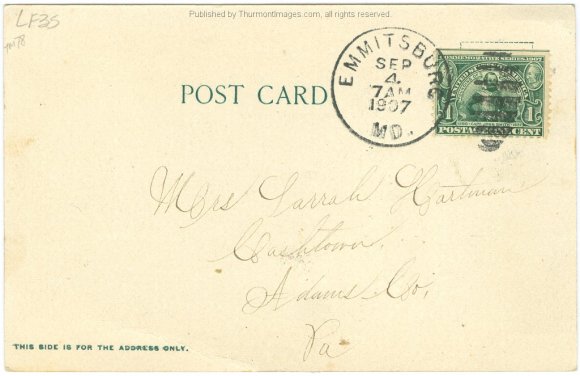 Published by ThurmontImages.com, all rights reserved.
LF35
TM78
COMMEMORATIVE SERIES 1907
EMMITSBURG
SEP
4
7 AM
1907
MD.
POST CARD
1
1
POSTAGE ONE CENT
Mrs Sarrah Hartman
Cashtown,
Adams Co,
Pa
THIS SIDE IS FOR THE ADDRESS ONLY.